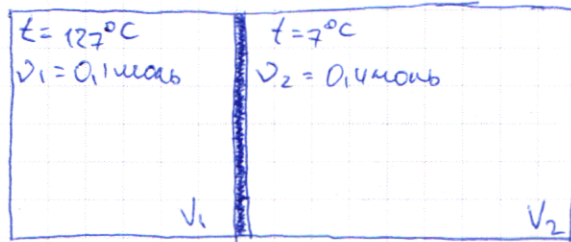 t = 127°C
ν₁ = 0,1 моль
V₁
t = 7°C
ν₂ = 0,4 моль
V₂